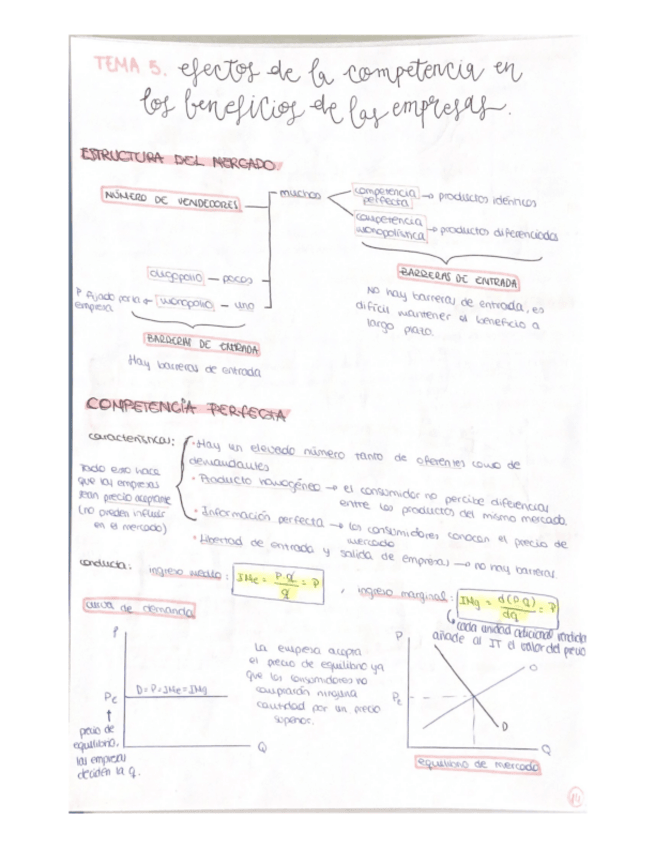 TEMA 5. efectos de la competencia en
los beneficios de las empresas.
ESTRUCTURA DEL MERCADO.
NÚMERO DE VENDEDORES
muchos
competencia perfecta → productos idénticos
competencia monopolística → productos diferenciados
BARRERAS DE ENTRADA
No hay barreras de entrada, es
difícil mantener el beneficio a
largo plazo.
oligopolio — pocos
P fijado por la empresa ← monopolio — uno
BARRERAS DE ENTRADA
Hay barreras de entrada
COMPETENCIA PERFECTA
características:
· Hay un elevado número tanto de oferentes como de
demandantes
· Producto homogéneo → el consumidor no percibe diferencias
entre los productos del mismo mercado.
· Información perfecta → los consumidores conocen el precio de
mercado
· Libertad de entrada y salida de empresas → no hay barreras
Todo esto hace
que las empresas
sean precio aceptante
(no pueden influir
en el mercado)
conducta: ingreso medio: IMe = P·q / q = P , ingreso marginal: IMg = d(P·Q) / dq = P
cada unidad adicional vendida
añade al IT el valor del precio
curva de demanda
P
Pe
D=P=IMe=IMg
Q
↑
precio de
equilibrio.
las empresas
deciden la q.
La empresa acepta
el precio de equilibrio ya
que los consumidores no
comprarán ninguna
cantidad por un precio
superior.
P
Pe
O
D
Q
equilibrio de mercado